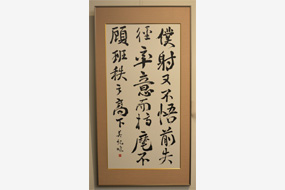 僕射又不悟前失
徑率意而指麾不
顧班秩之高下